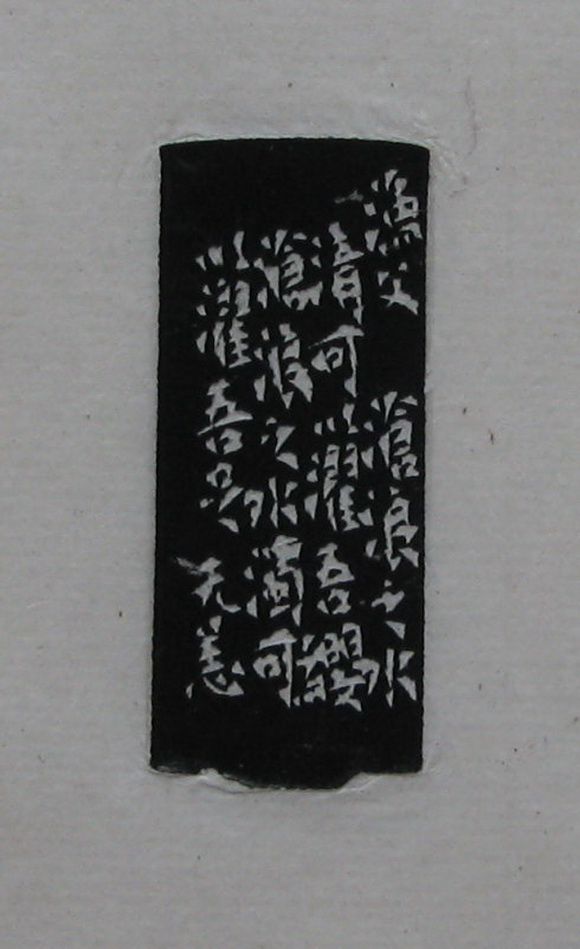 漁父 滄浪之水
清可濯吾纓
滄浪之水濁可
濯吾足 无恙